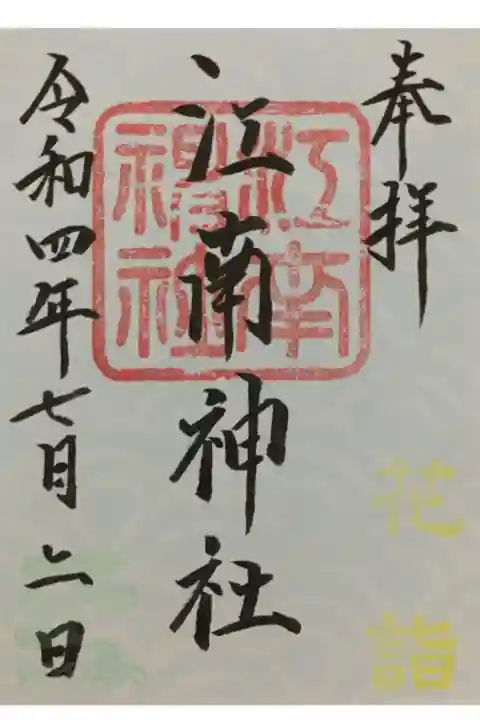 奉拝
花詣
江南神社
江南神社
令和四年七月六日